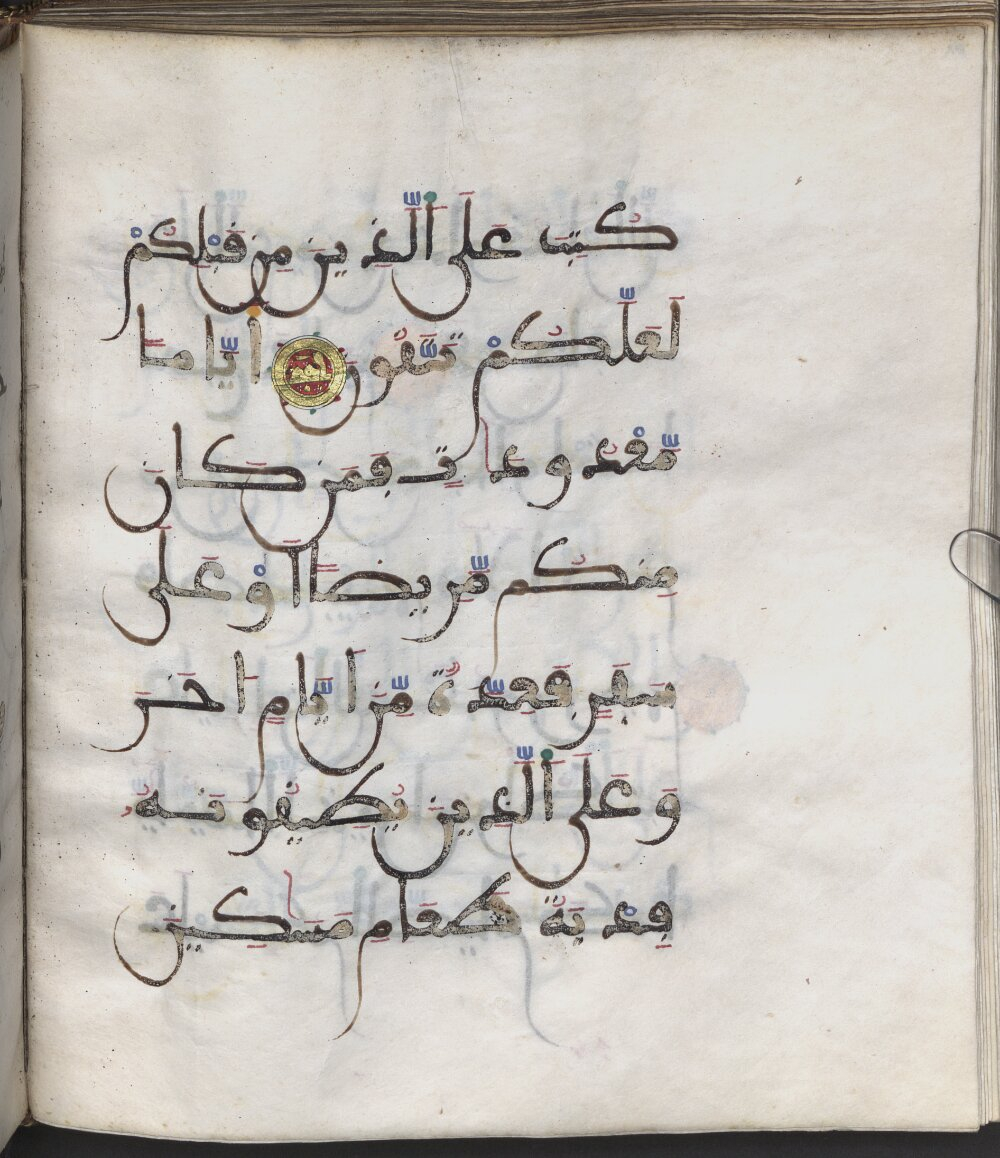 كُتِبَ عَلَى ٱلَّذِينَ مِن قَبْلِكُمْ
لَعَلَّكُمْ تَتَّقُونَ أَيَّامًا
مَّعْدُودَٰتٍ فَمَن كَانَ
مِنكُم مَّرِيضًا أَوْ عَلَىٰ
سَفَرٍ فَعِدَّةٌ مِّنْ أَيَّامٍ أُخَرَ
وَعَلَى ٱلَّذِينَ يُطِيقُونَهُ
فِدْيَةُ طَعَامِ مَسَٰكِينَ